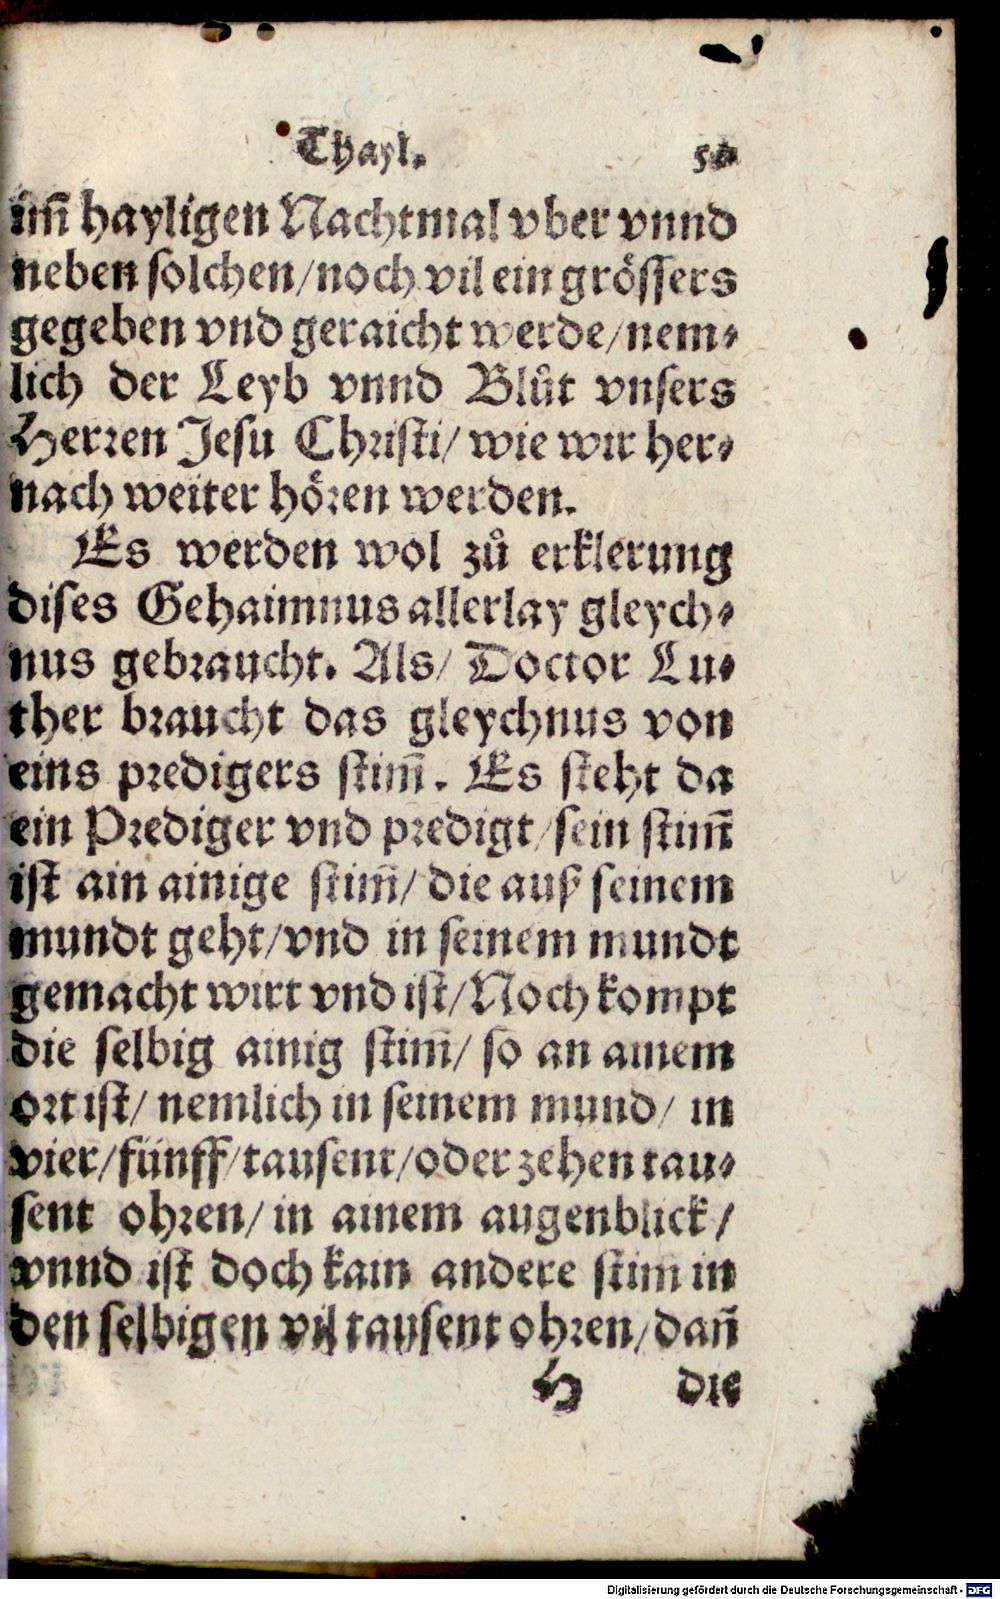 Thayl.
im̃ hayligen Nachtmal vber vnnd
neben solchen/noch vil ein grössers
gegeben vnd geraicht werde/nem⸗
lich der Leyb vnnd Blůt vnsers
Herren Jesu Christi/ wie wir her⸗
nach weiter hören werden.
Es werden wol zů erklerung
dises Gehaimnus allerlay gleych⸗
nus gebraucht. Als/ Doctor Lu⸗
ther braucht das gleychnus von
eins predigers stim̃. Es steht da
ein Prediger vnd predigt/sein stim̃
ist ain ainige stim̃/ die auß seinem
mundt geht/vnd in seinem mundt
gemacht wirt vnd ist/Noch kompt
die selbig ainig stim̃/ so an ainem
ort ist/ nemlich in seinem mund/ in
vier/fünff/tausent/oder zehen tau⸗
sent ohren/ in ainem augenblick/
vnnd ist doch kain andere stim in
den selbigen vil tausent ohren/dañ
H die
Digitalisierung gefördert durch die Deutsche Forschungsgemeinschaft - DFG